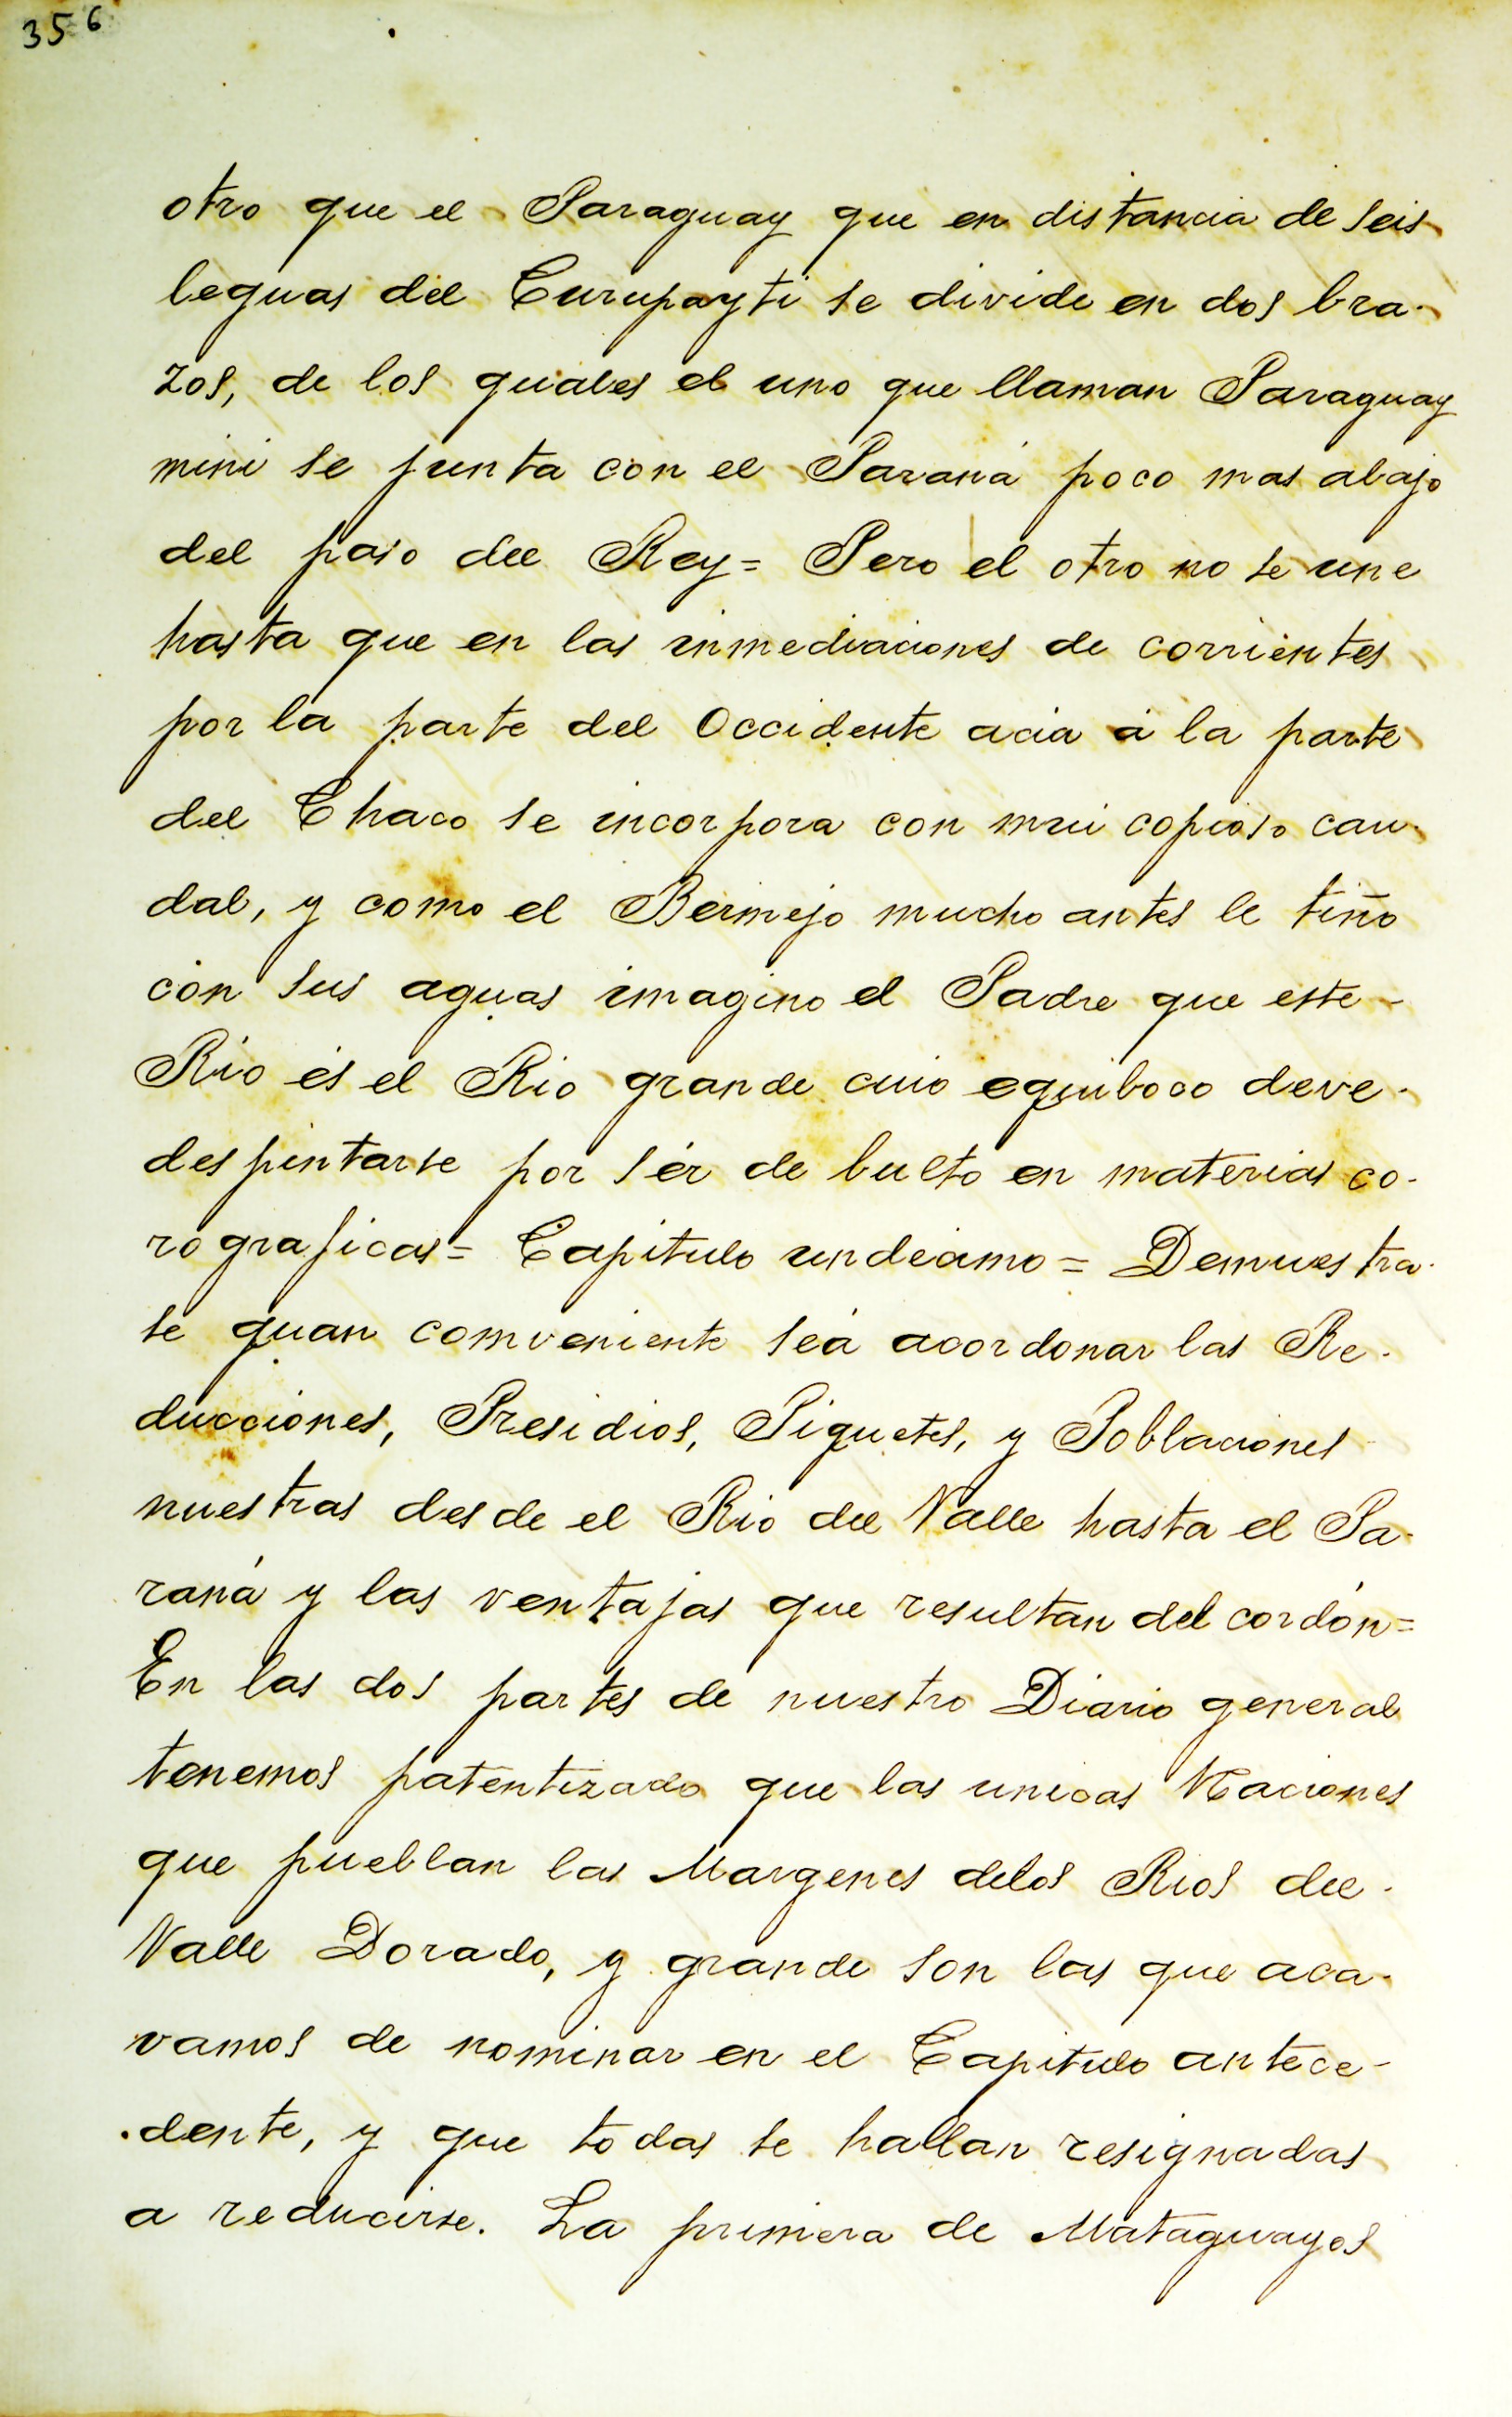 356
otro que el Paraguay que en distancia de seis
leguas del Curupayti se divide en dos bra-
zos, de los quales el uno que llaman Paraguay
mini se junta con el Paraná poco mas abajo
del paso del Rey= Pero el otro no se une
hasta que en las inmediaciones de corrientes
por la parte del Occidente acia á la parte
del Chaco se incorpora con mui copioso cau-
dal, y como el Bermejo mucho antes le tiño
con sus aguas imagino el Padre que este-
Rio és el Rio grande cuio equiboco deve-
despintarse por sér de bulto en materias co-
rograficas= Capitulo undecimo= Demuestra-
se quan comveniente seá acordonar las Re-
ducciones, Presidios, Piquetes, y Poblaciones
nuestras desde el Rio del Valle hasta el Pa-
raná y las ventajas que resultan del cordón=
En las dos partes de nuestro Diario general
tenemos patentizado que las unicas Naciones
que pueblan las Margenes delos Rios del-
Valle Dorado, y grande son las que aca-
vamos de nominar en el Capitulo antece-
dente, y que todas se hallan resignadas
a reducirse. La primera de Mataguayos